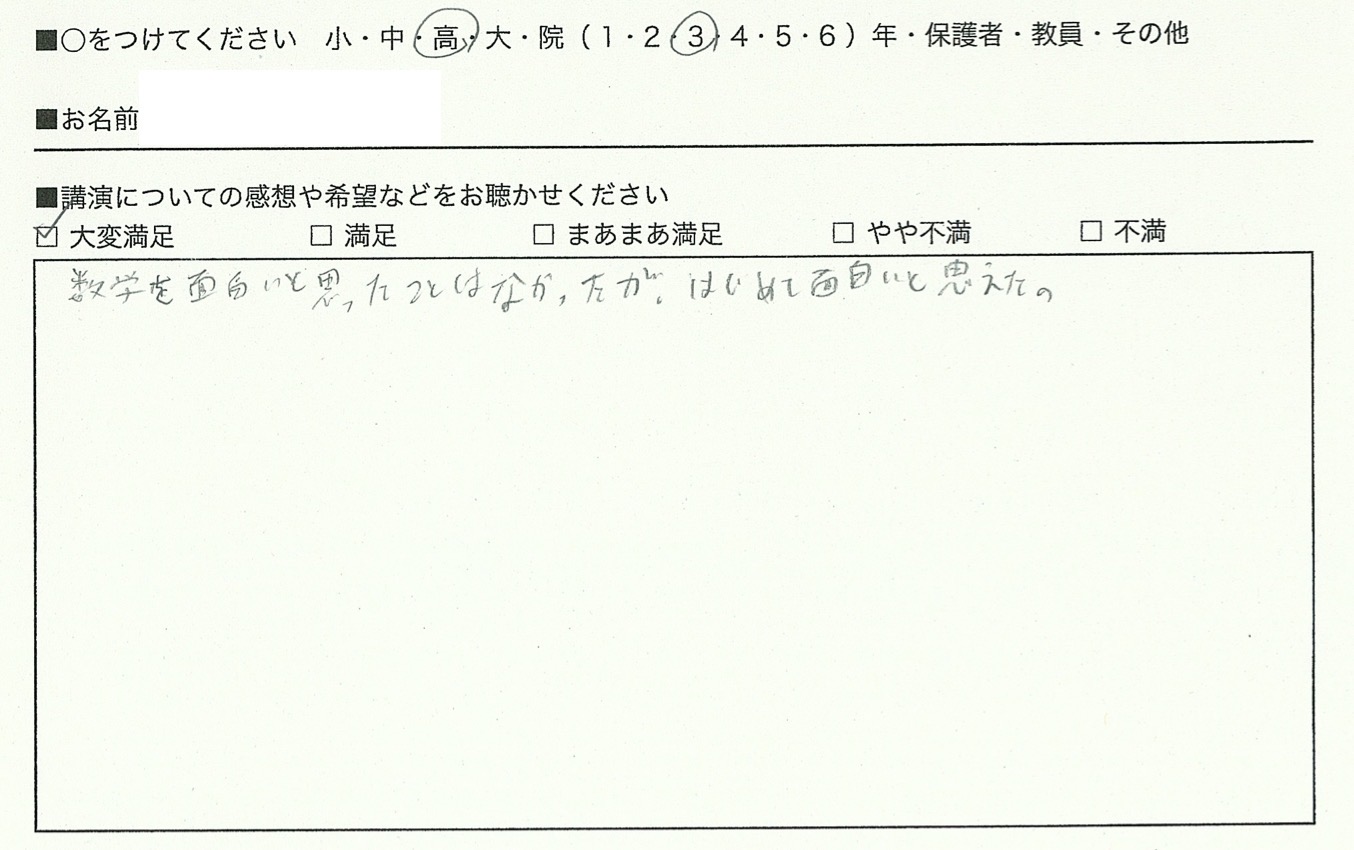 ■○をつけてください　小・中・高・大・院（１・２・３・４・５・６）年・保護者・教員・その他
■お名前
■講演についての感想や希望などをお聴かせください
☑ 大変満足　□ 満足　□ まあまあ満足　□ やや不満　□ 不満
数学を面白いと思ったことはなかったが、はじめて面白いと思えた。